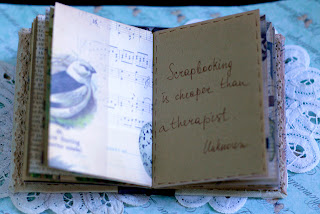 Scrapbooking
is cheaper than
a therapist.
Unknown